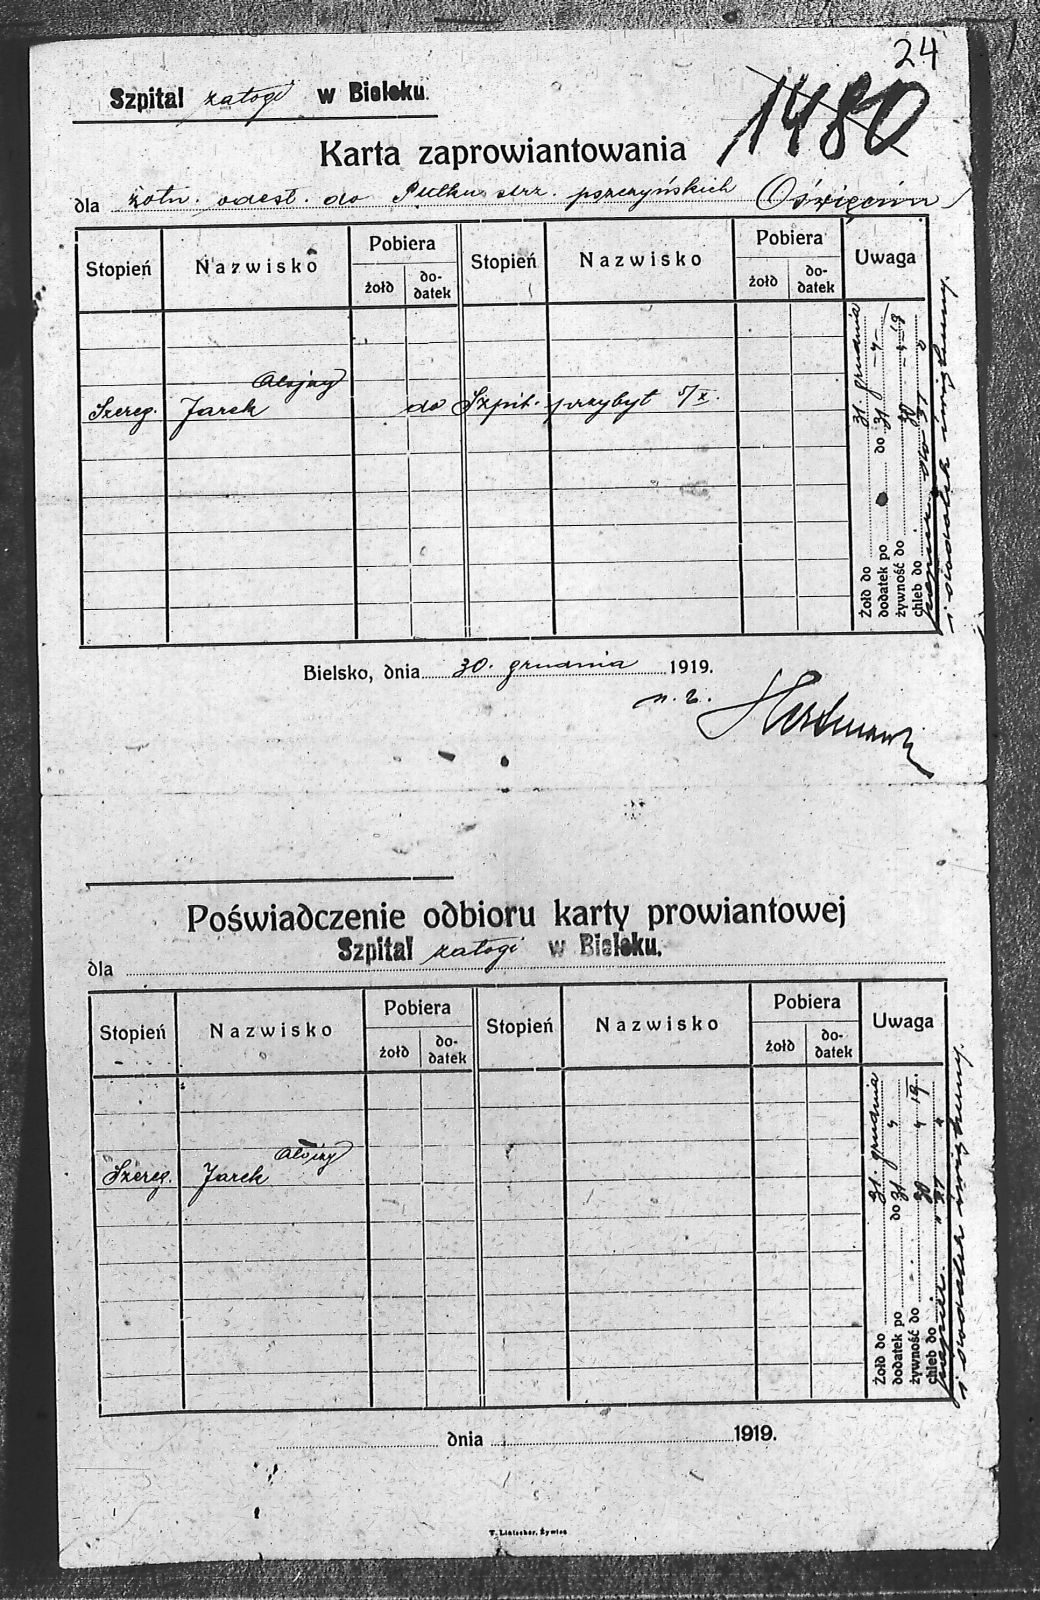 24
Szpital załogi w Bielsku.
1480
Karta zaprowiantowania
dla żołn. odesł. do Pułku strz. pszczyńskich Oświęcim
Stopień Nazwisko Pobiera żołd do-datek Stopień Nazwisko Pobiera żołd do-datek Uwaga
Alojzy
Szereg. Jarek do Szpit. przybył 5/X.
Żołd do 31 grudnia
dodatek po do 31 "
żywność do 30 " 19
chleb do
i dodatek
Bielsko, dnia 30. grudnia 1919.
Poświadczenie odbioru karty prowiantowej
Szpital załogi w Bielsku.
dla
Stopień Nazwisko Pobiera żołd do-datek Stopień Nazwisko Pobiera żołd do-datek Uwaga
Alojzy
Szereg. Jarek
Żołd do 31. grudnia
dodatek po do 31 "
żywność do 30 " 19.
chleb do
i dodatek
dnia 1919.
T. Lintscher, Żywiec